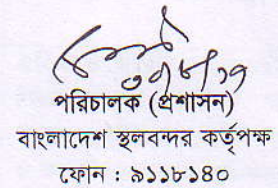 পরিচালক (প্রশাসন)
বাংলাদেশ স্থলবন্দর কর্তৃপক্ষ
ফোন : ৯১১৮১৪০